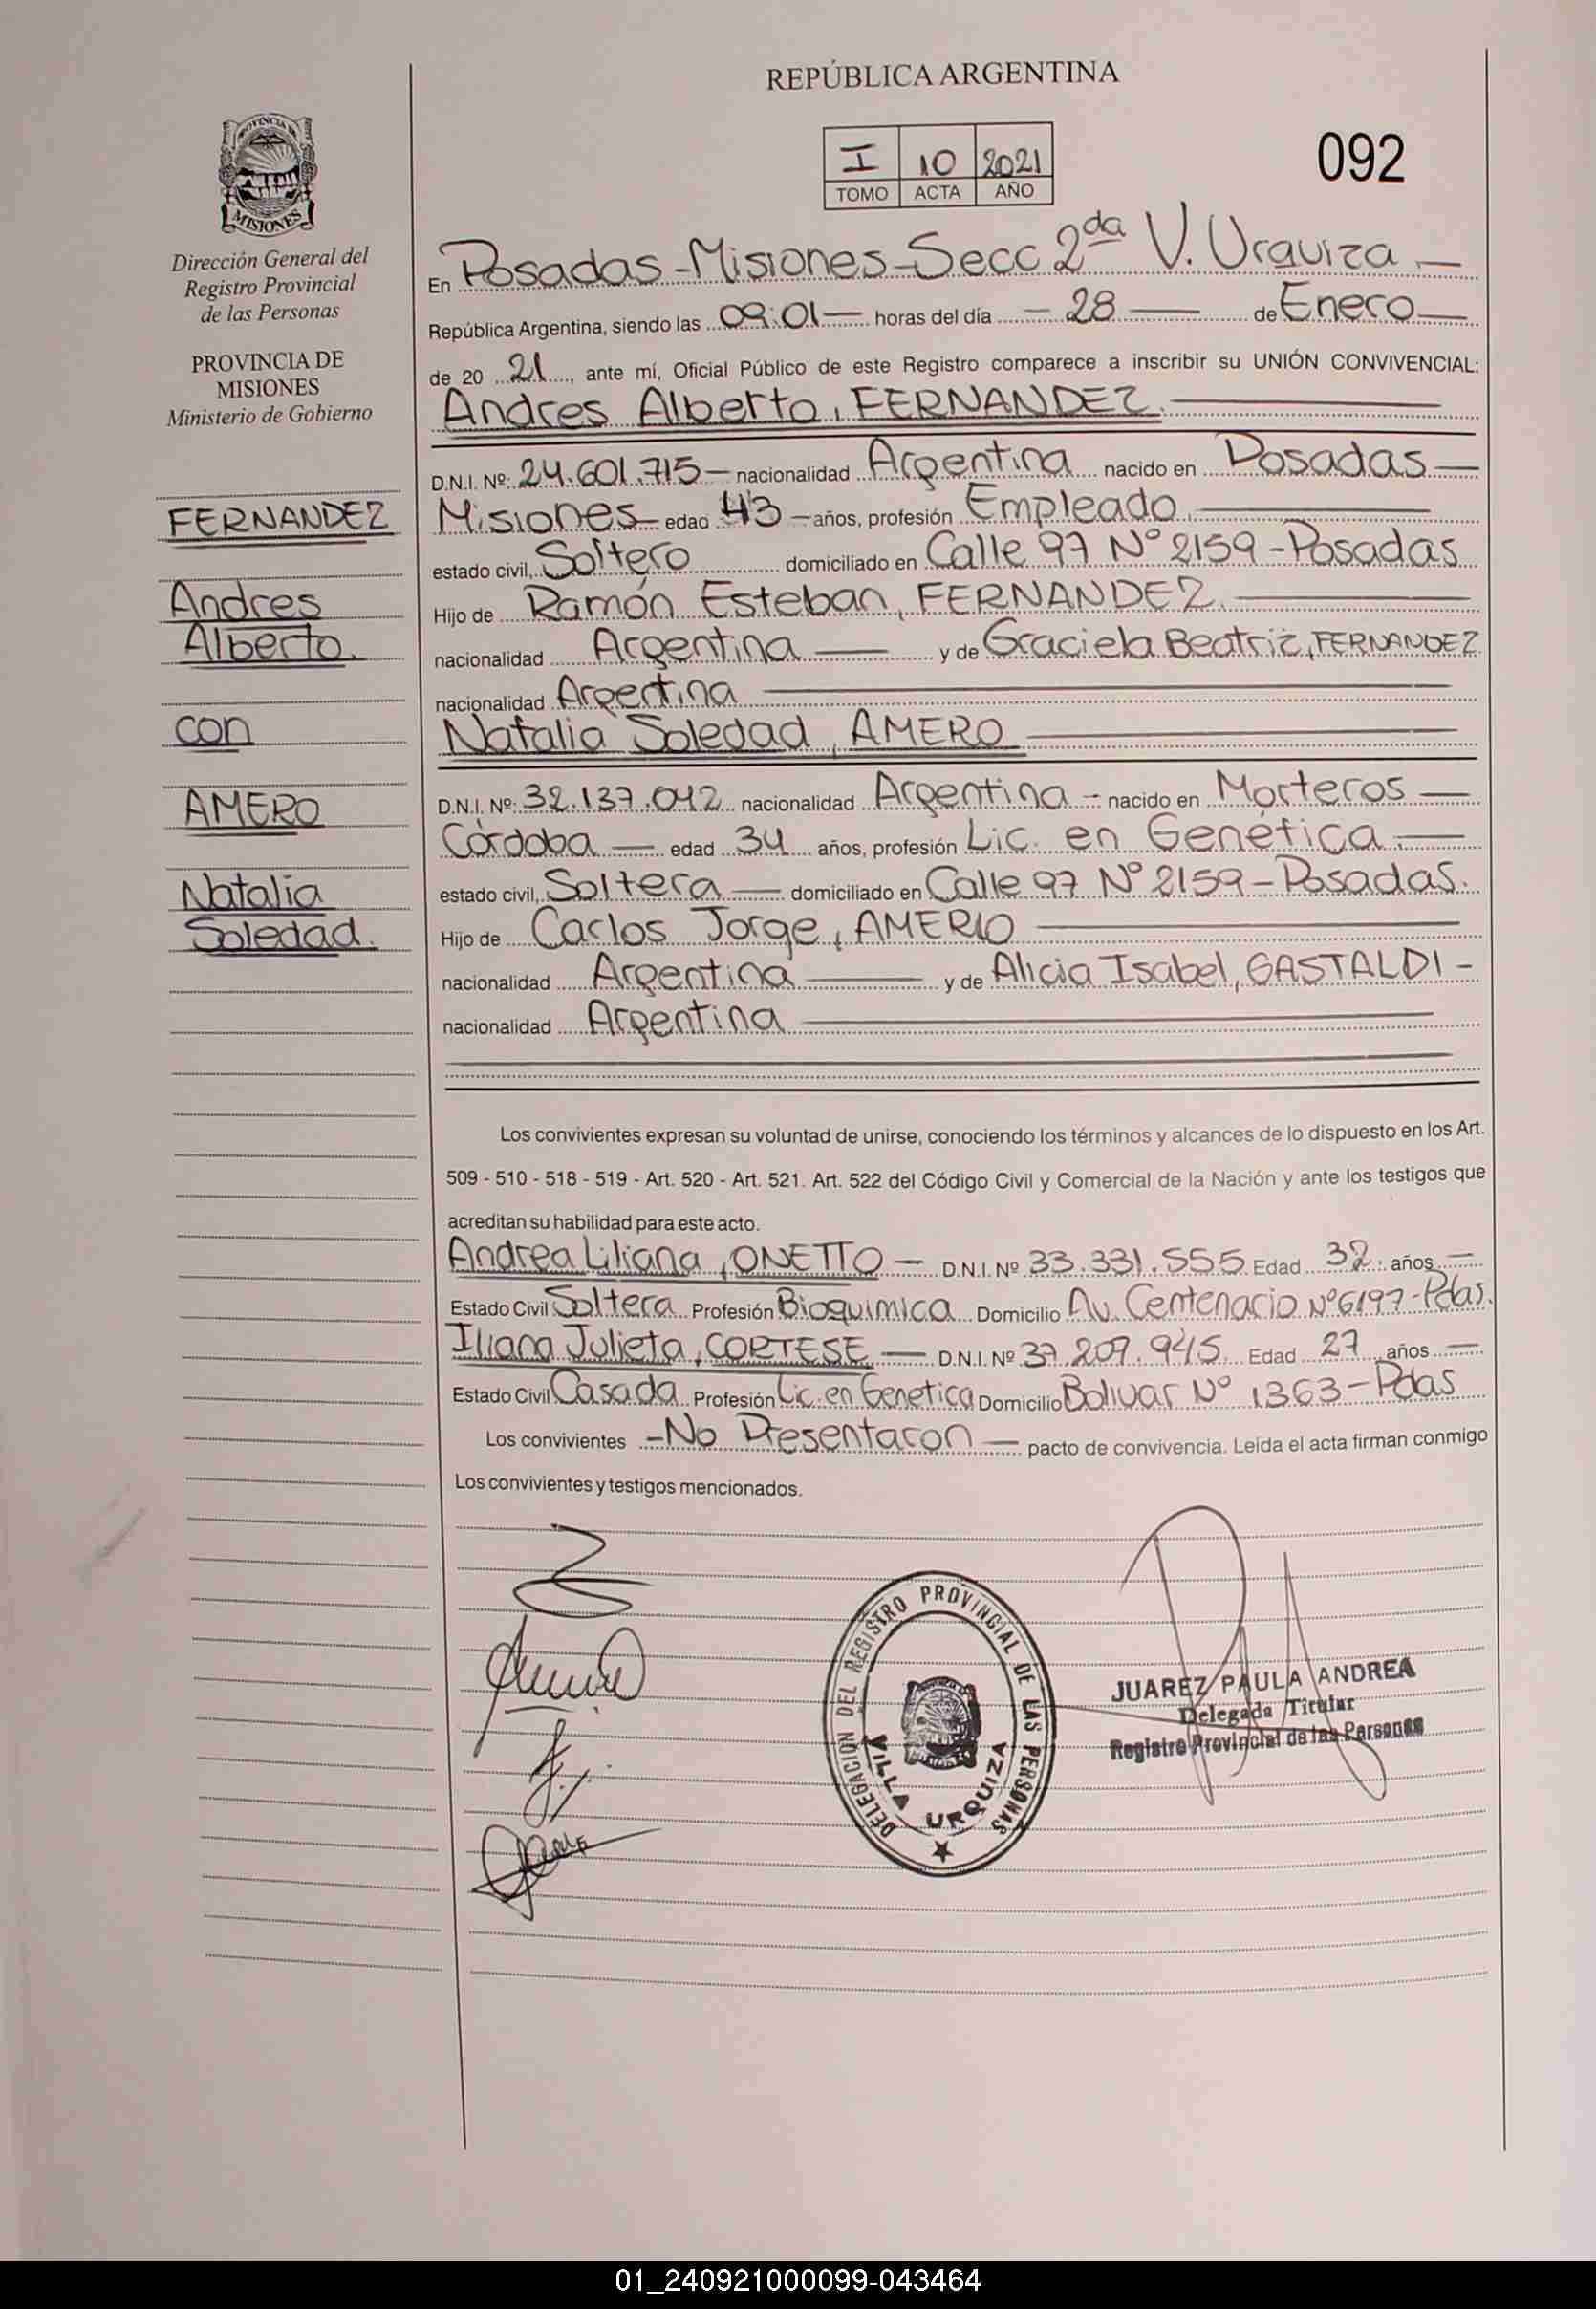 REPÚBLICA ARGENTINA
092
I 10 2021
TOMO ACTA AÑO
PROVINCIA DE
MISIONES
Dirección General del
Registro Provincial
de las Personas
PROVINCIA DE
MISIONES
Ministerio de Gobierno
FERNANDEZ
Andres
Alberto.
con
AMERO
Natalia
Soledad.
En Posadas-Misiones-Secc 2da V. Urquiza.—
República Argentina, siendo las 09:01— horas del día — 28 — de Enero—
de 20 21, ante mí, Oficial Público de este Registro comparece a inscribir su UNIÓN CONVIVENCIAL:
Andres Alberto, FERNANDEZ.—
D.N.I. Nº: 24.601.715— nacionalidad Argentina nacido en Posadas—
Misiones— edad 43 — años, profesión Empleado.—
estado civil, Soltero domiciliado en Calle 97 Nº 2159-Posadas
Hijo de Ramón Esteban, FERNANDEZ.—
nacionalidad Argentina — y de Graciela Beatriz, FERNANDEZ
nacionalidad Argentina —
Natalia Soledad, AMERO —
D.N.I. Nº: 32.137.042 nacionalidad Argentina - nacido en Morteros —
Córdoba — edad 34 años, profesión Lic. en Genética.—
estado civil, Soltera — domiciliado en Calle 97 Nº 2159-Posadas.
Hijo de Carlos Jorge, AMERIO —
nacionalidad Argentina — y de Alicia Isabel, GASTALDI -
nacionalidad Argentina —
Los convivientes expresan su voluntad de unirse, conociendo los términos y alcances de lo dispuesto en los Art.
509 - 510 - 518 - 519 - Art. 520 - Art. 521. Art. 522 del Código Civil y Comercial de la Nación y ante los testigos que
acreditan su habilidad para este acto.
Andrea Liliana, ONETTO — D.N.I. Nº 33.331.555 Edad 32 años —
Estado Civil Soltera Profesión Bioquimica Domicilio Av. Centenario Nº6197-Pdas.
Iliana Julieta, CORTESE — D.N.I. Nº 37.209.945 Edad 27 años —
Estado Civil Casada Profesión Lic. en Genetica Domicilio Bolivar Nº 1363-Pdas
Los convivientes -No Presentaron — pacto de convivencia. Leída el acta firman conmigo
Los convivientes y testigos mencionados.
DELEGACION DEL REGISTRO PROVINCIAL DE LAS PERSONAS
VILLA URQUIZA
JUAREZ PAULA ANDREA
Delegada Titular
Registro Provincial de las Personas
01_240921000099-043464